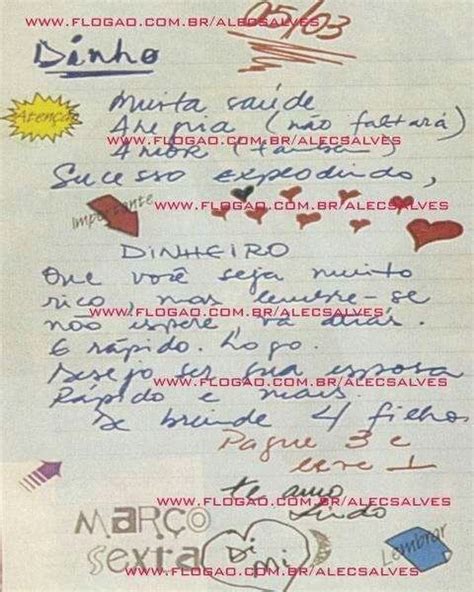 WWW.FLOGAO.COM.BR/ALECSALVES
05/03
Dinho
Atenção
Muita saúde
Alegria (não faltará)
WWW.FLOGAO.COM.BR/ALECSALVES
Amor (também)
Sucesso explodindo,
Importante
WWW.FLOGAO.COM.BR/ALECSALVES
DINHEIRO
Que você seja muito
rico, mas lembre-se
WWW.FLOGAO.COM.BR/ALECSALVES
não espere, vá atrás.
E rápido. Logo.
Desejo ser sua esposa
WWW.FLOGAO.COM.BR/ALECSALVES
Rápido e mais.
De brinde 4 filhos
Pague 3 e
leve 1
te amo
WWW.FLOGAO.COM.BR/ALECSALVES
Lindo
MARÇO
Sexta
Di
Mi
Lembrar
WWW.FLOGAO.COM.BR/ALECSALVES